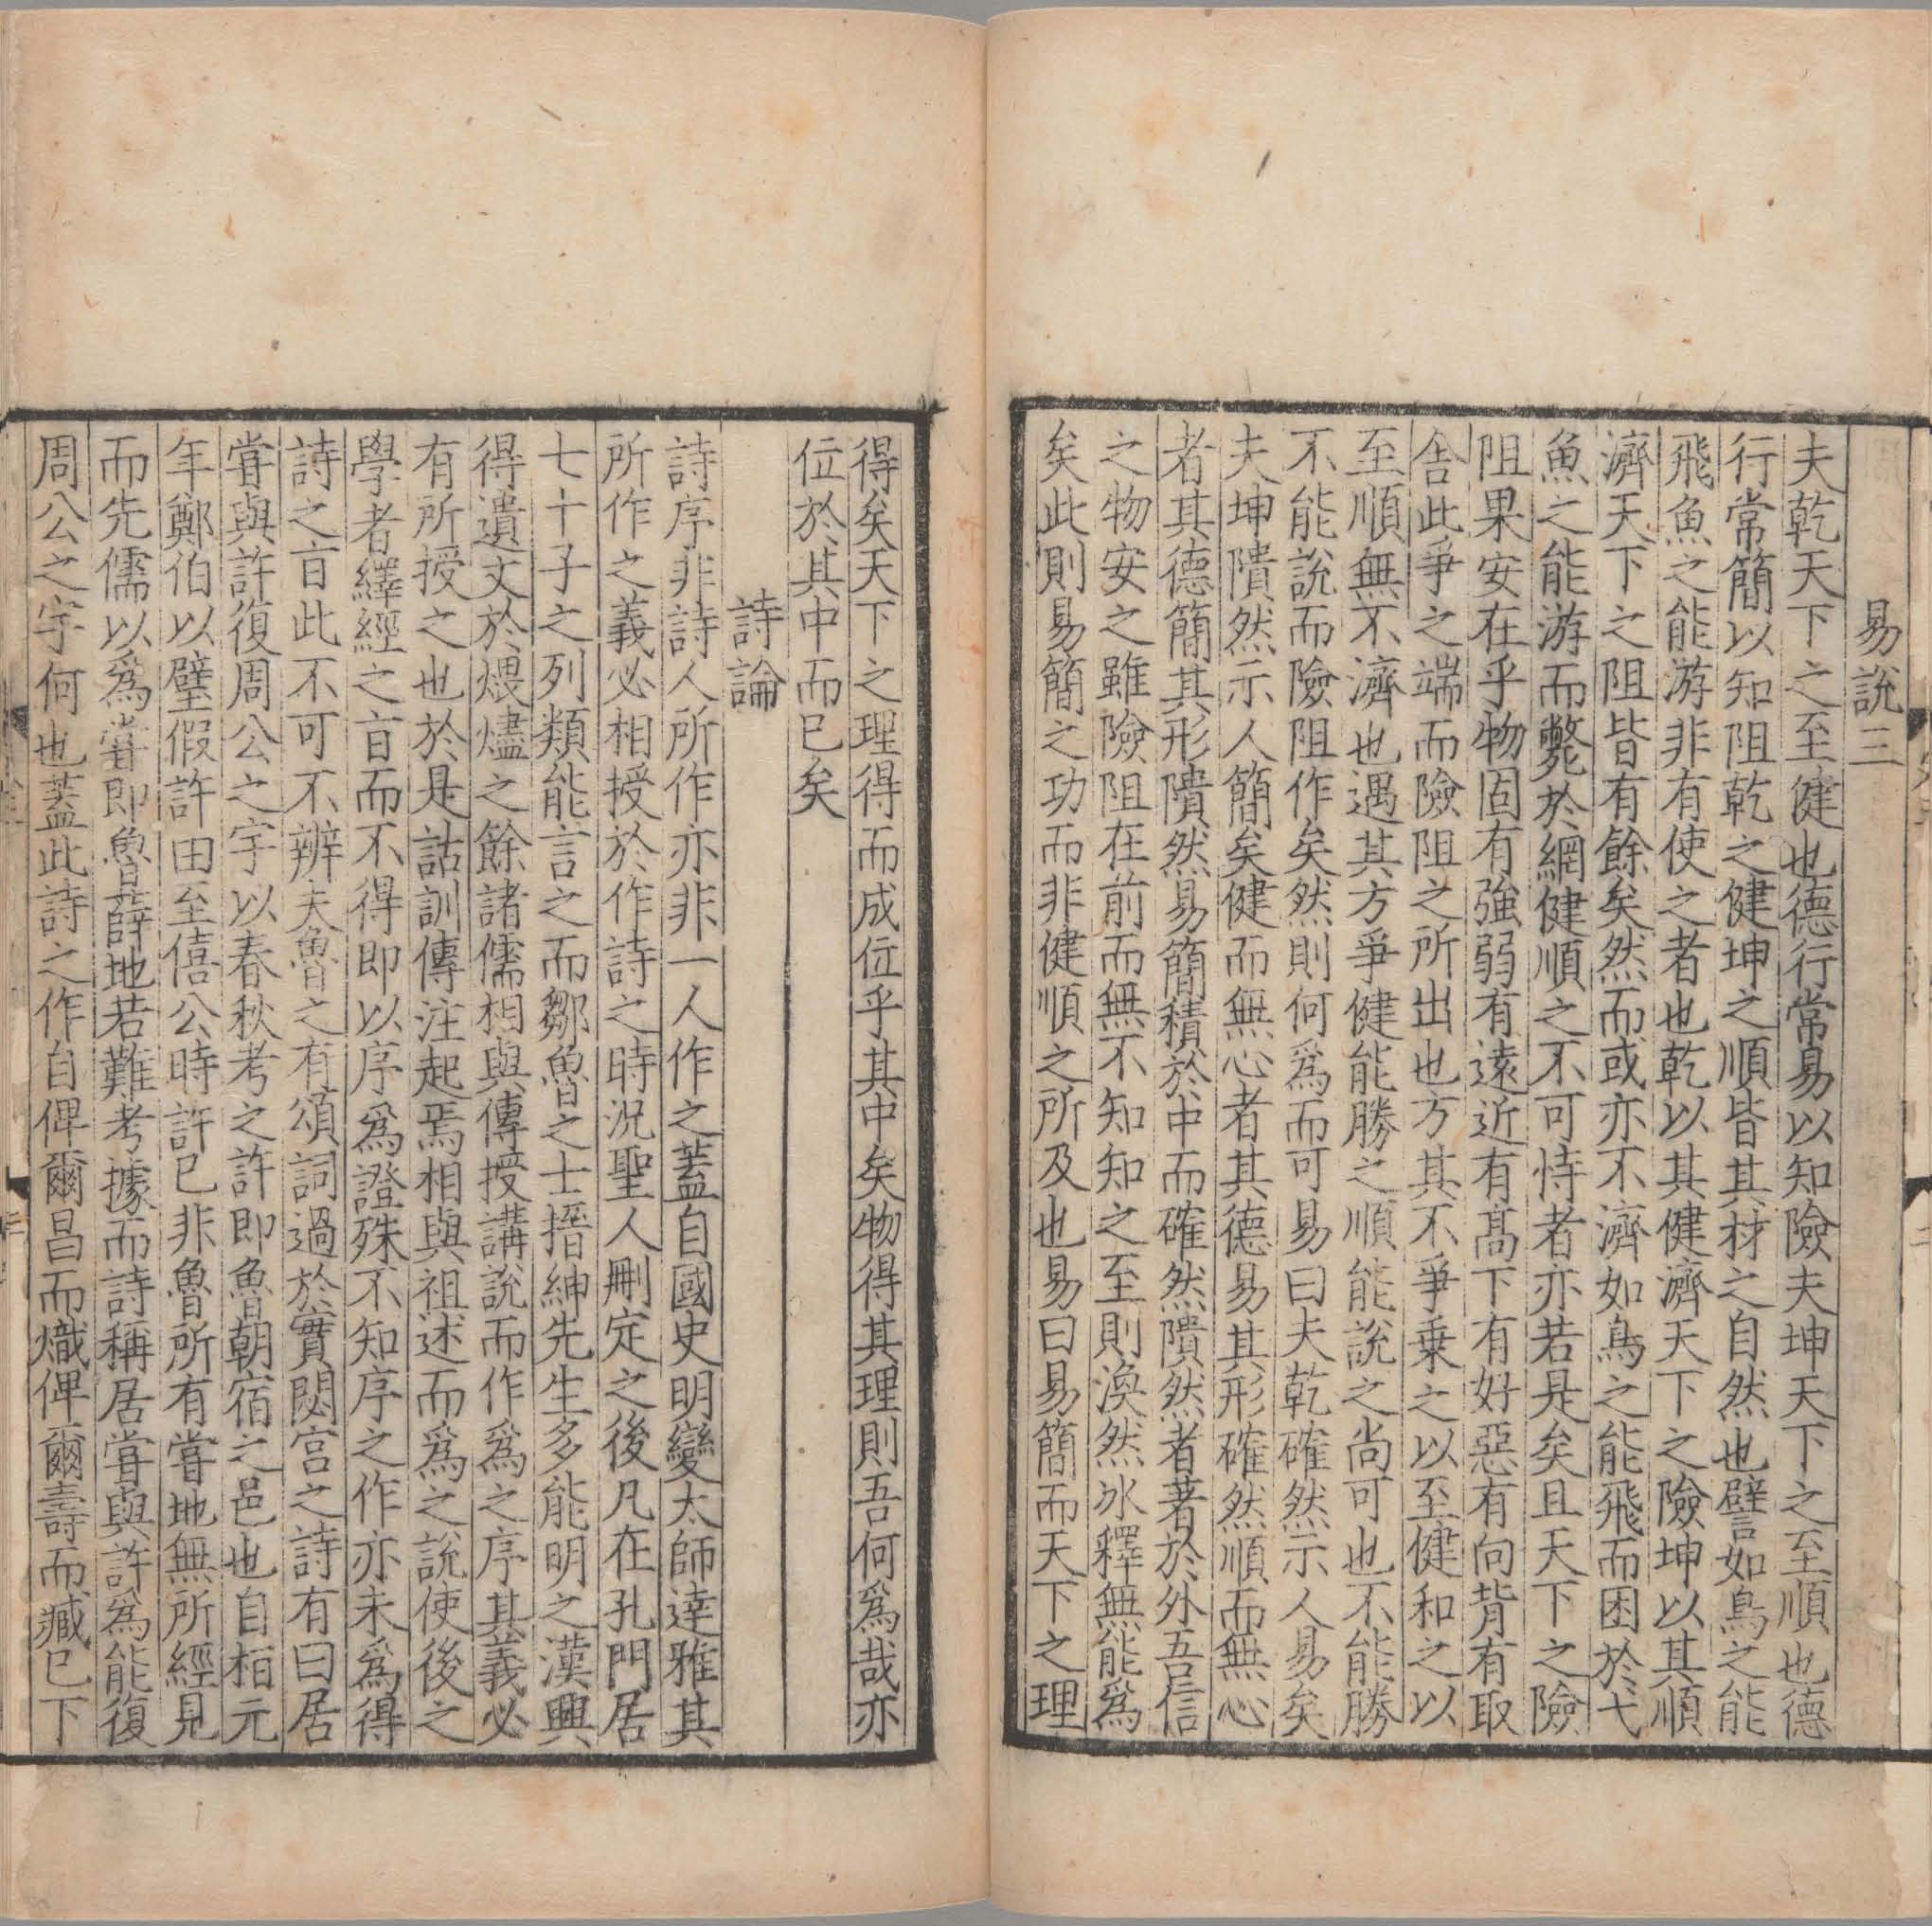 易說三
夫乾天下之至健也德行常易以知險夫坤天下之至順也德
行常簡以知阻乾之健坤之順皆其材之自然也譬如鳥之能
飛魚之能游非有使之者也乾以其健濟天下之險坤以其順
濟天下之阻皆有餘矣然而或亦不濟如鳥之能飛而困於弋
魚之能游而斃於網健順之不可恃者亦若是矣且天下之險
阻果安在乎物固有強弱有遠近有高下有好惡有向背有取
舍此爭之端而險阻之所出也方其不爭乗之以至健和之以
至順無不濟也遇其方爭健能勝之順能說之尚可也不能勝
不能說而險阻作矣然則何為而可易曰夫乾確然示人易矣
夫坤隤然示人簡矣健而無心者其德易其形確然順而無心
者其德簡其形隤然易簡積於中而確然隤然者著於外吾信
之物安之雖險阻在前而無不知知之至則渙然冰釋無能為
矣此則易簡之功而非健順之所及也易曰易簡而天下之理
得矣天下之理得而成位乎其中矣物得其理則吾何為哉亦
位於其中而已矣
詩論
詩序非詩人所作亦非一人作之蓋自國史明變太師達雅其
所作之義必相授於作詩之時況聖人刪定之後凡在孔門居
七十子之列類能言之而鄒魯之士搢紳先生多能明之漢興
得遺文於煨燼之餘諸儒相與傳授講說而作為之序其義必
有所授之也於是詁訓傳注起焉相與祖述而為之說使後之
學者繹經之㫖而不得即以序為證殊不知序之作亦未為得
詩之㫖此不可不辨夫魯之有頌詞過於實閟宮之詩有曰居
甞與許復周公之宇以春秋考之許即魯朝宿之邑也自桓元
年鄭伯以璧假許田至僖公時許已非魯所有甞地無所經見
而先儒以為甞即魯薛地若難考據而詩稱居甞與許為能復
周公之宇何也蓋此詩之作自俾爾昌而熾俾爾壽而臧已下